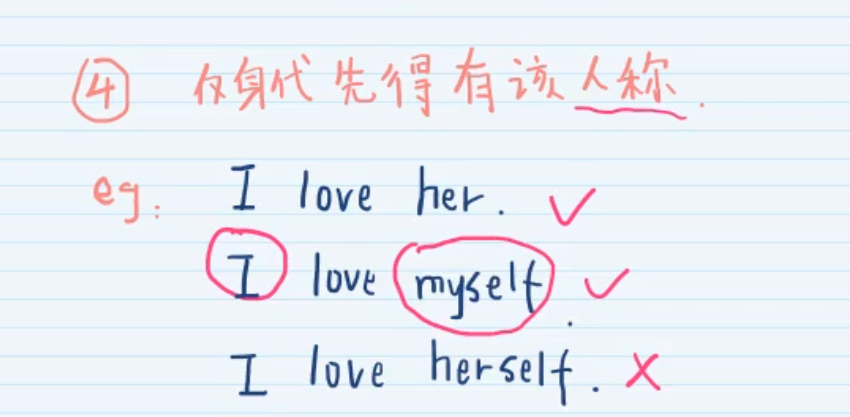 ④ 反身代先得有该人称.
eg: I love her. ✓
I love myself. ✓
I love herself. ×